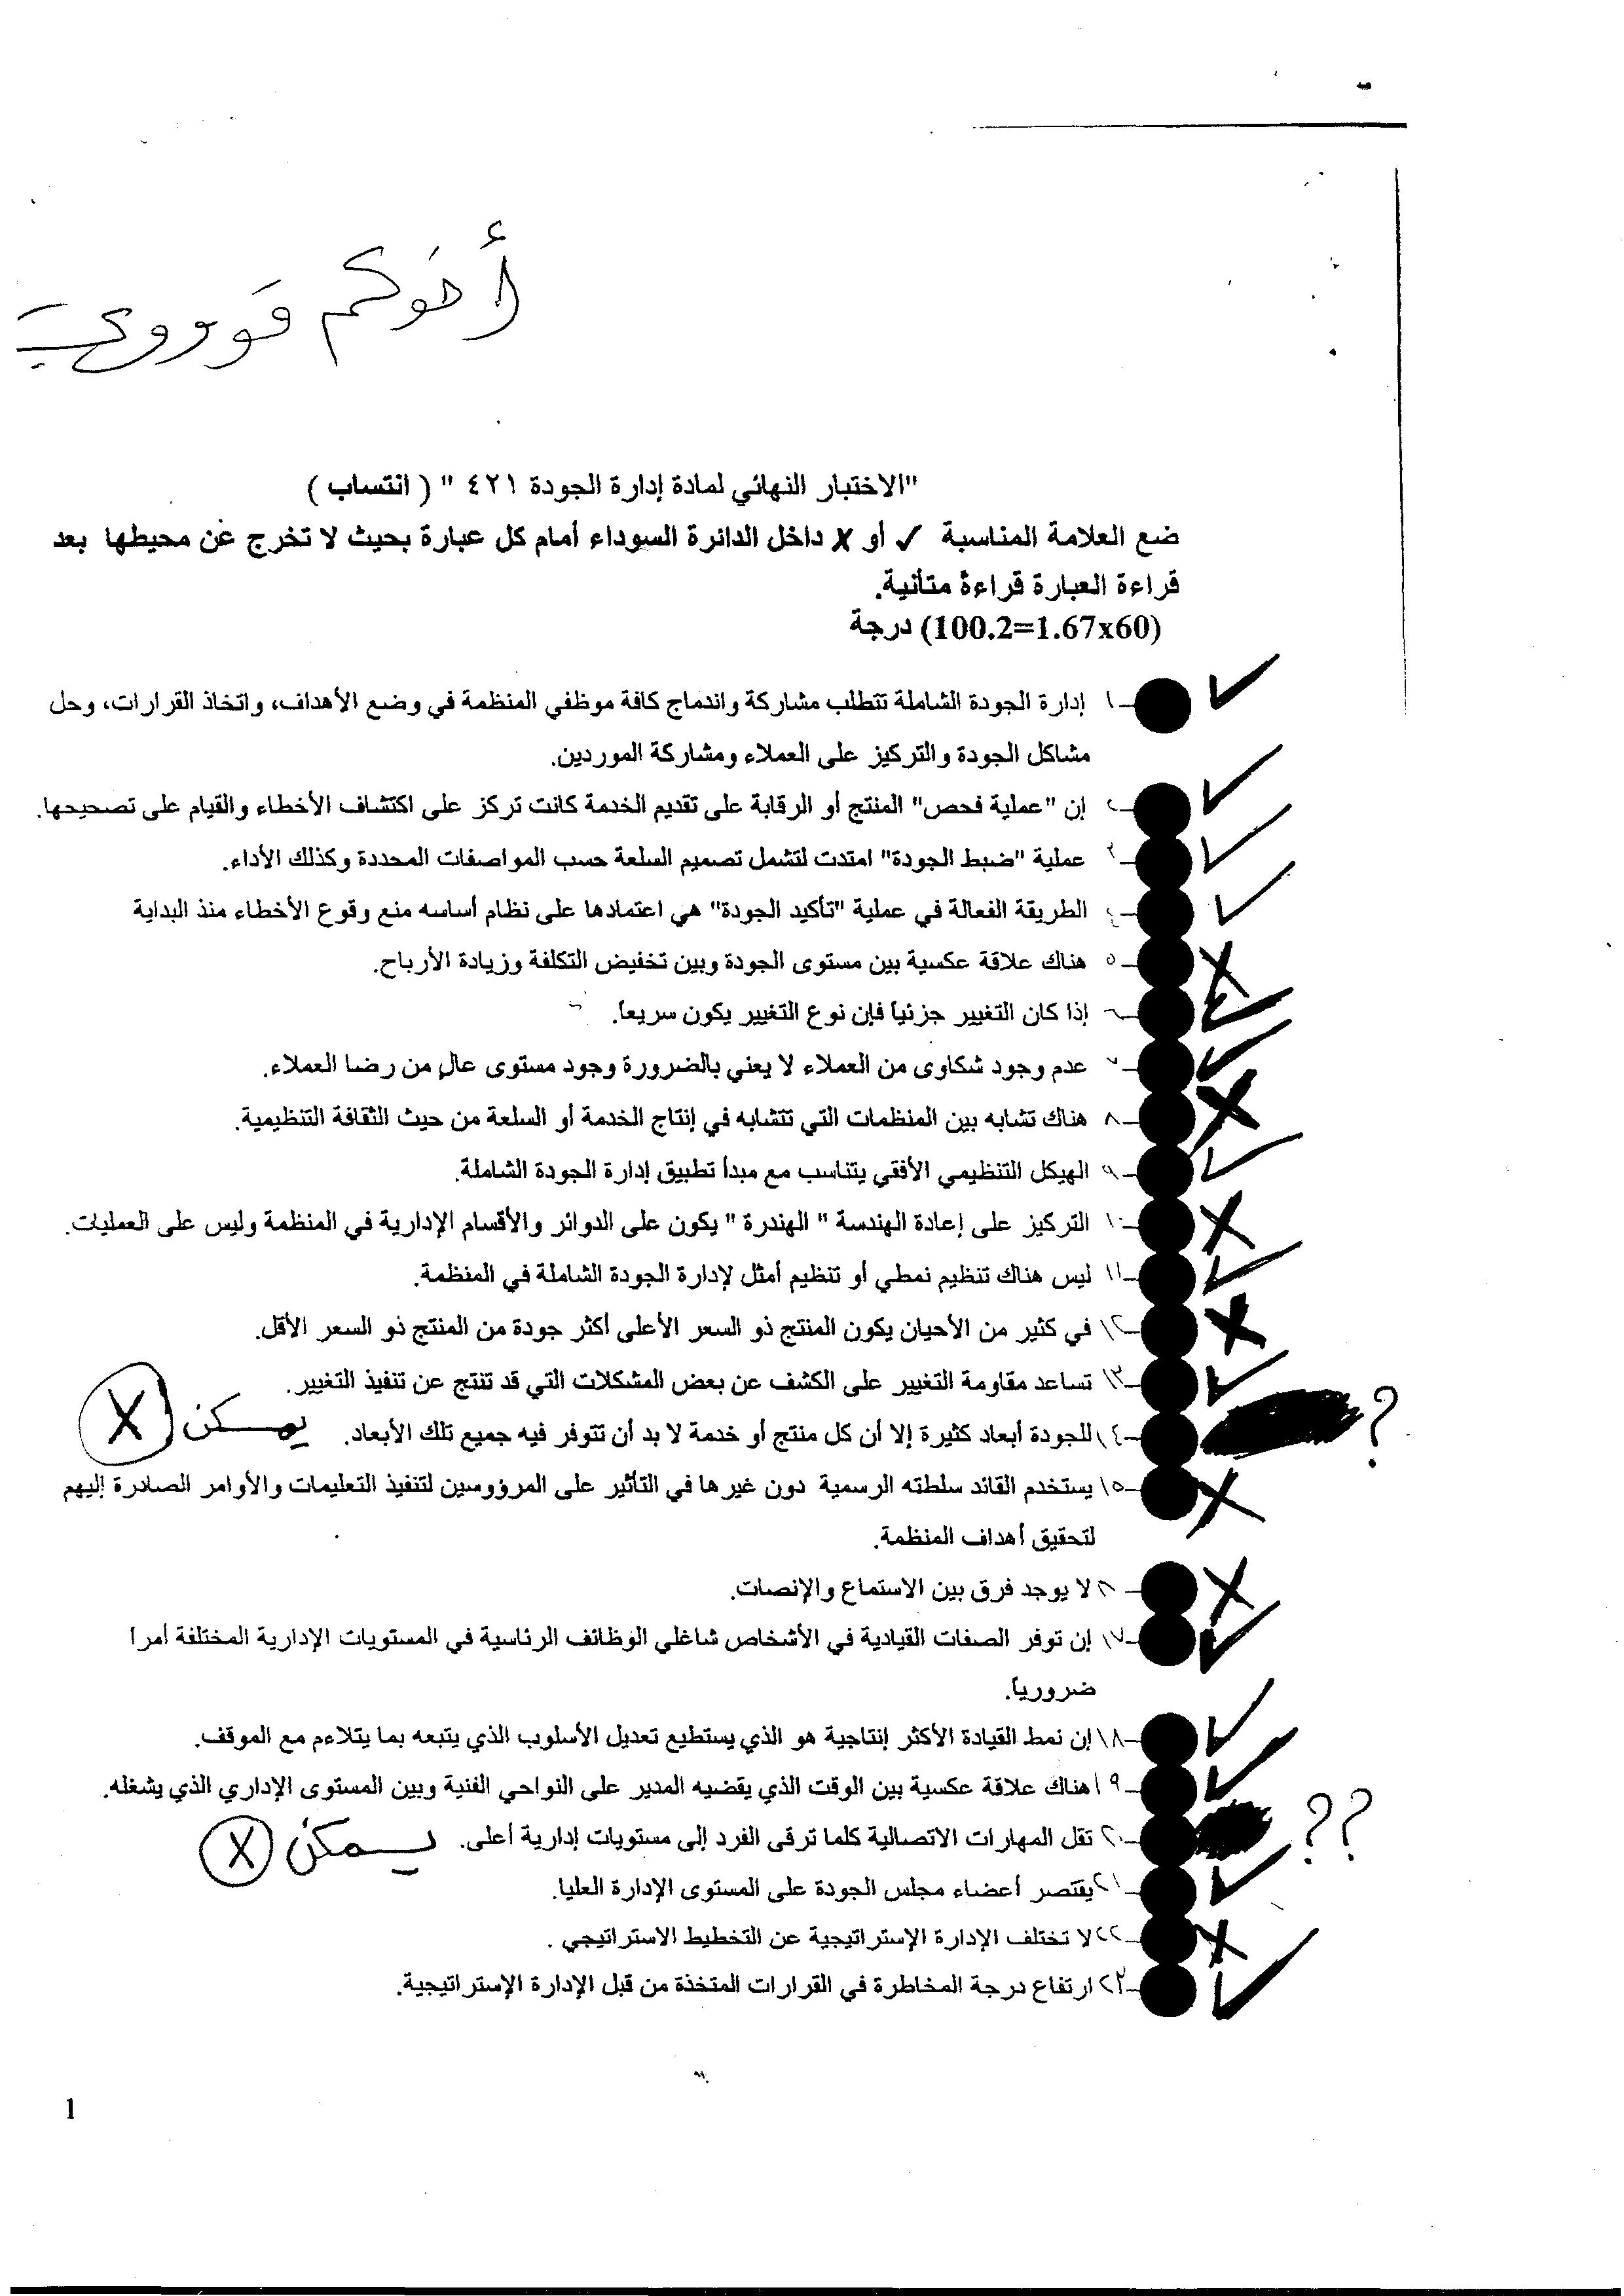 أخوكم قووووي
"الاختبار النهائي لمادة إدارة الجودة ٤٢١ " ( انتساب )
ضع العلامة المناسبة ✓ أو ✗ داخل الدائرة السوداء أمام كل عبارة بحيث لا تخرج عن محيطها بعد
قراءة العبارة قراءة متأنية.
(100.2=1.67x60) درجة
١- إدارة الجودة الشاملة تتطلب مشاركة واندماج كافة موظفي المنظمة في وضع الأهداف، واتخاذ القرارات، وحل ✓
مشاكل الجودة والتركيز على العملاء ومشاركة الموردين.
٢- إن "عملية فحص" المنتج أو الرقابة على تقديم الخدمة كانت تركز على اكتشاف الأخطاء والقيام على تصحيحها. ✓
٣- عملية "ضبط الجودة" امتدت لتشمل تصميم السلعة حسب المواصفات المحددة وكذلك الأداء. ✓
٤- الطريقة الفعالة في عملية "تأكيد الجودة" هي اعتمادها على نظام أساسه منع وقوع الأخطاء منذ البداية ✓
٥- هناك علاقة عكسية بين مستوى الجودة وبين تخفيض التكلفة وزيادة الأرباح. ✗
٦- إذا كان التغيير جزئياً فإن نوع التغيير يكون سريعاً. ✓
٧- عدم وجود شكاوى من العملاء لا يعني بالضرورة وجود مستوى عالٍ من رضا العملاء. ✓
٨- هناك تشابه بين المنظمات التي تتشابه في إنتاج الخدمة أو السلعة من حيث الثقافة التنظيمية. ✗
٩- الهيكل التنظيمي الأفقي يتناسب مع مبدأ تطبيق إدارة الجودة الشاملة. ✓
١٠- التركيز على إعادة الهندسة " الهندرة " يكون على الدوائر والأقسام الإدارية في المنظمة وليس على العمليات. ✗
١١- ليس هناك تنظيم نمطي أو تنظيم أمثل لإدارة الجودة الشاملة في المنظمة. ✓
١٢- في كثير من الأحيان يكون المنتج ذو السعر الأعلى أكثر جودة من المنتج ذو السعر الأقل. ✗
١٣- تساعد مقاومة التغيير على الكشف عن بعض المشكلات التي قد تنتج عن تنفيذ التغيير. ✓
١٤- للجودة أبعاد كثيرة إلا أن كل منتج أو خدمة لا بد أن تتوفر فيه جميع تلك الأبعاد. يمكن ✗ ؟
١٥- يستخدم القائد سلطته الرسمية دون غيرها في التأثير على المرؤوسين لتنفيذ التعليمات والأوامر الصادرة إليهم ✗
لتحقيق أهداف المنظمة.
١٦- لا يوجد فرق بين الاستماع والإنصات. ✗
١٧- إن توفر الصفات القيادية في الأشخاص شاغلي الوظائف الرئاسية في المستويات الإدارية المختلفة أمراً ✓
ضرورياً.
١٨- إن نمط القيادة الأكثر إنتاجية هو الذي يستطيع تعديل الأسلوب الذي يتبعه بما يتلاءم مع الموقف. ✓
١٩- هناك علاقة عكسية بين الوقت الذي يقضيه المدير على النواحي الفنية وبين المستوى الإداري الذي يشغله. ✓
٢٠- تقل المهارات الاتصالية كلما ترقى الفرد إلى مستويات إدارية أعلى. يمكن ✗ ؟؟
٢١- يقتصر أعضاء مجلس الجودة على المستوى الإدارة العليا. ✓
٢٢- لا تختلف الإدارة الإستراتيجية عن التخطيط الاستراتيجي . ✗
٢٣- ارتفاع درجة المخاطرة في القرارات المتخذة من قبل الإدارة الإستراتيجية. ✓
1